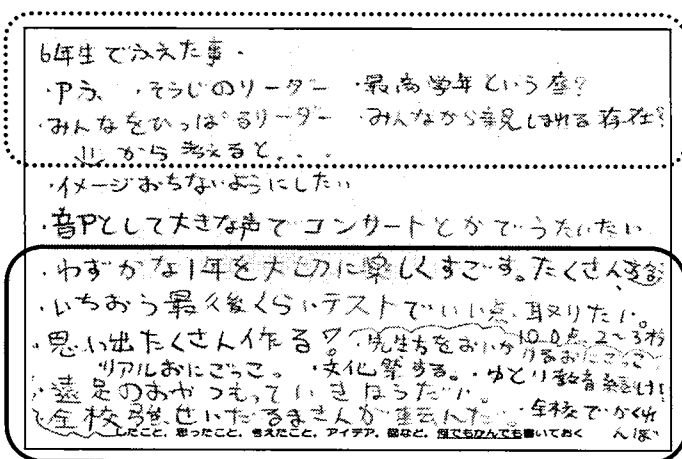 6年生でふえた事.
・P方、・そうじのリーダー ・最高学年という座?
・みんなをひっぱるリーダー ・みんなから親しまれる存在?
↓から考えると...
・イメージおちないようにしたい
・音Pとして大きな声でコンサートとかでうたいたい
・わずかな1年を大切に楽しくすごす。たくさん
・いちおう最後くらいテストでいい点取りたい。
100点、2~3枚
・思い出たくさん作る ・先生方をおいかけるおにごっこ
リアルおにごっこ。・文化祭する。・ゆとり教育
・遠足のおやつもっていきほうだい。
・全校強せいだるまさんが転んだ。・全校でかくれんぼ
したこと、思ったこと、考えたこと、アイデア、図など、何でもかんでも書いておく